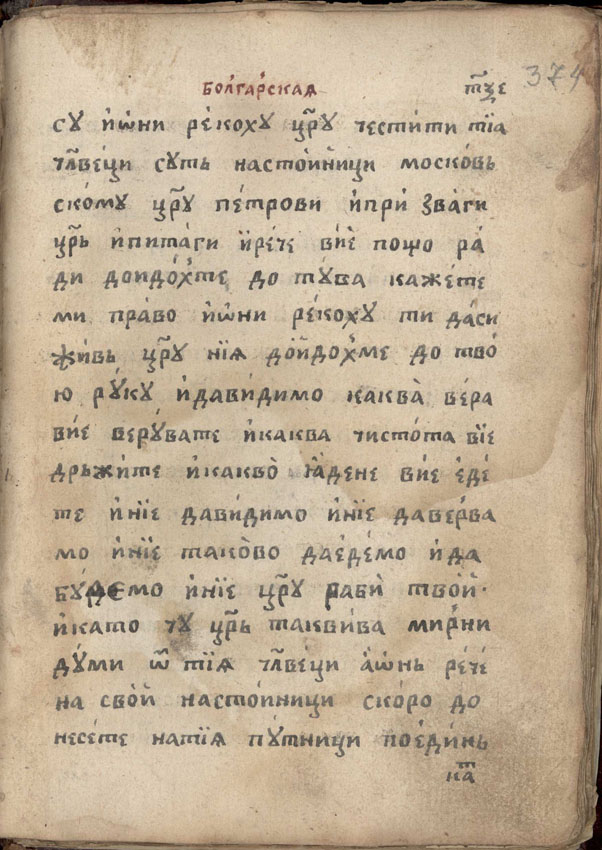 болгарская т҃ѯе 374
су и҆ѡ҆ни ре́коху цр҃у честити тїа
чл҃веци суть настои́ници московь
скому цр҃у пе́трови и҆при́ ꙁваги
цр҃ь и҆пита́ги и҆ре́че вїе́ пощо ра́
ди доидо́хте до тꙋва каже́те
ми пра́во и҆ѡ҆ни ре́коху ти да́си
жи́вь цр҃у нїѧ до́йдо́хме до тво́
ю рꙋ́кꙋ и҆дави́димо каква̀ ве́ра
вїе́ верꙋ́вате и҆каква чисто́та вїе
дрьжи́те и҆какво̀ ꙗ҆́дене вїе е҆де́
те и҆нїе дави́димо и҆нїе даве́рва
мо и҆нїе тако́во дае҆де́мо и҆да
бꙋ́демо и҆нїе цр҃у раби̇ твоѝ ·
и҆като чꙋ цр҃ь таквива мирни
дꙋ́ми ѿ тїѧ чл҃веци а҆ѡ҆нь ре́че́
на своѝ настои́ници скоро до
несе́те натїѧ пꙋ́тници пое҆ди́нь
кат